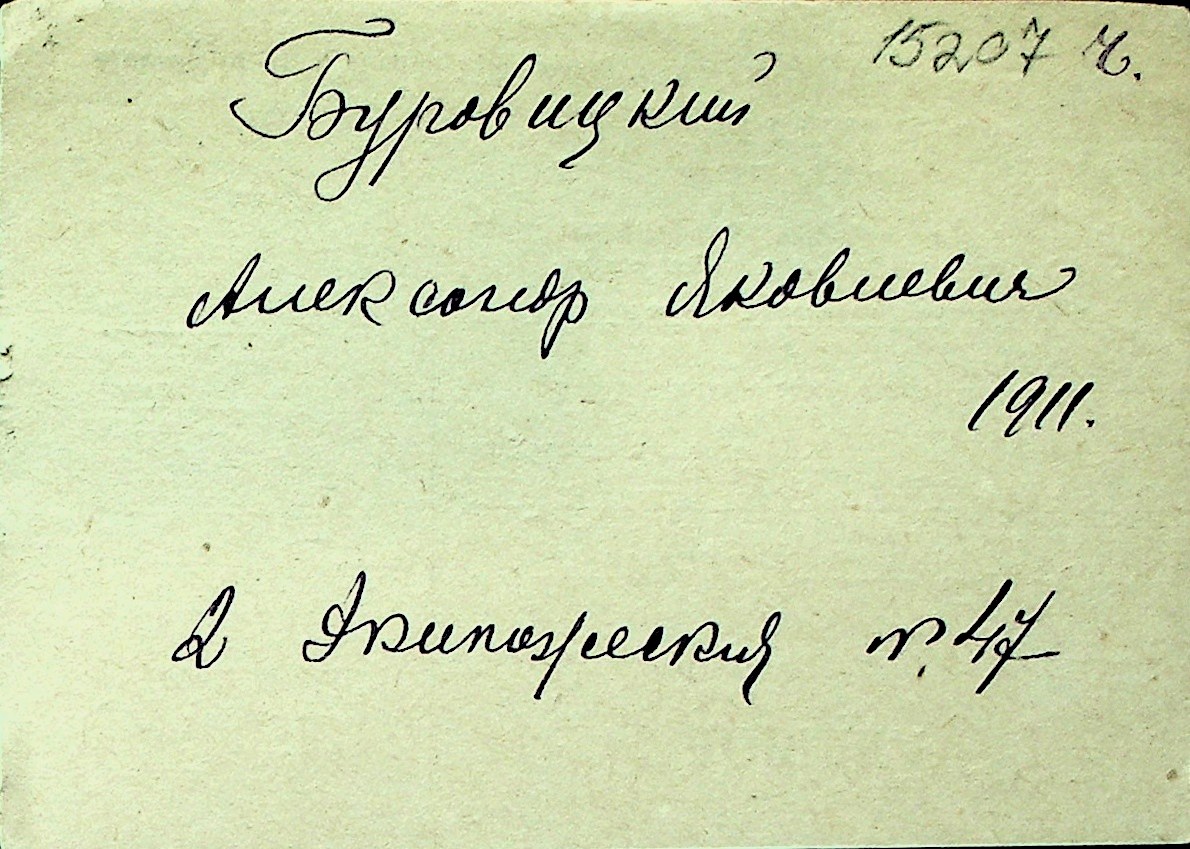 15207 ч.
Буровицкий
Александр Яковлевич
1911.
2 Экипажеская № 47